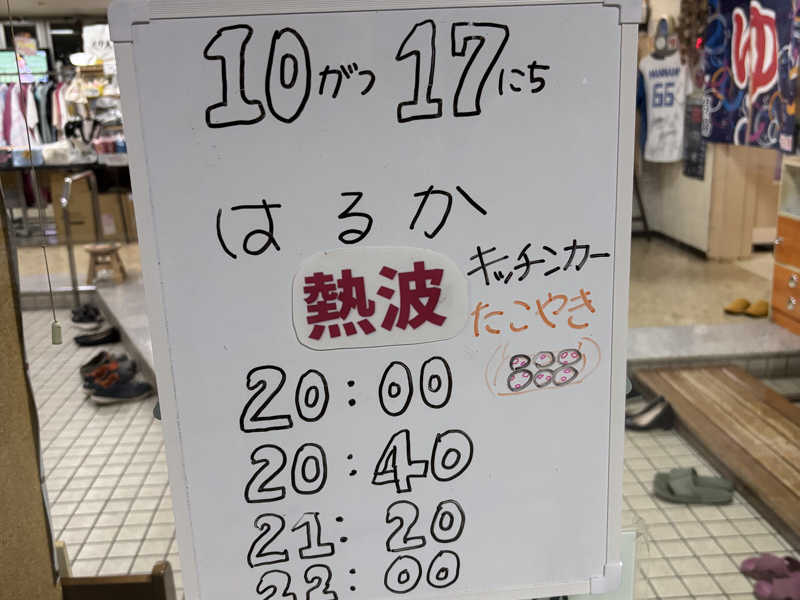 10がつ 17にち
はるか
熱波
キッチンカー
たこやき
20:00
20:40
21:20
22:00
ゆ
HANNAH
66